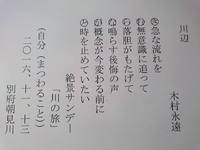 川辺
木村永遠
急な流れを
無意識に追って
落胆がもたげて
鳴らす後悔の声
概念が今変わる前に
時を止めていたい
絶景サンデー
「川の旅」
(自分(まつわること))
二〇一六、十一、十三
別府朝見川